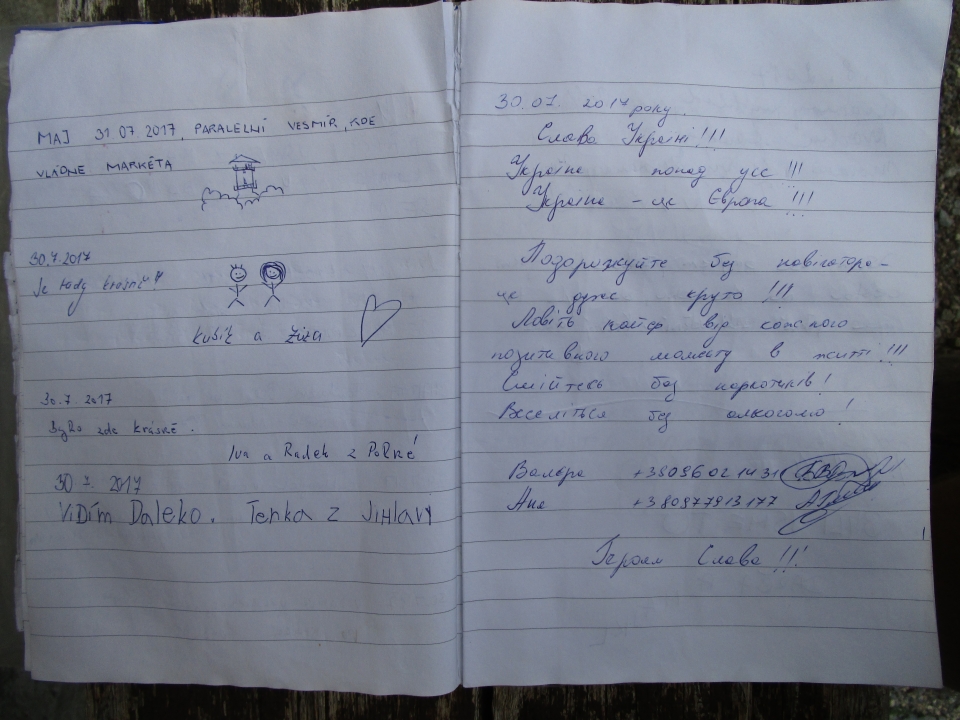 MAJ 31.07.2017, PARALELNÍ VESMÍR, KDE
VLÁDNE MARKÉTA
30.7.2017
Je tady krásně!!
Kubík a Žíža
30.7. 2017
Bylo zde krásně.
Iva a Radek z
30 7. 2017
VIDÍM DALEKO. TENKA Z JIHLAVY
30.07. 2017 року.
Слава Україні!!!
Україна понад усе!!!
Україна - це Європа!!!
Подорожуйте без навігатора -
це дуже круто!!!
Ловіть кайф від кожного
позитивного моменту в житті!!!
Смійтесь без наркотиків!
Веселіться без алкоголю!
Валера +380960214131
Аня +380977913177
Героям Слава!!!